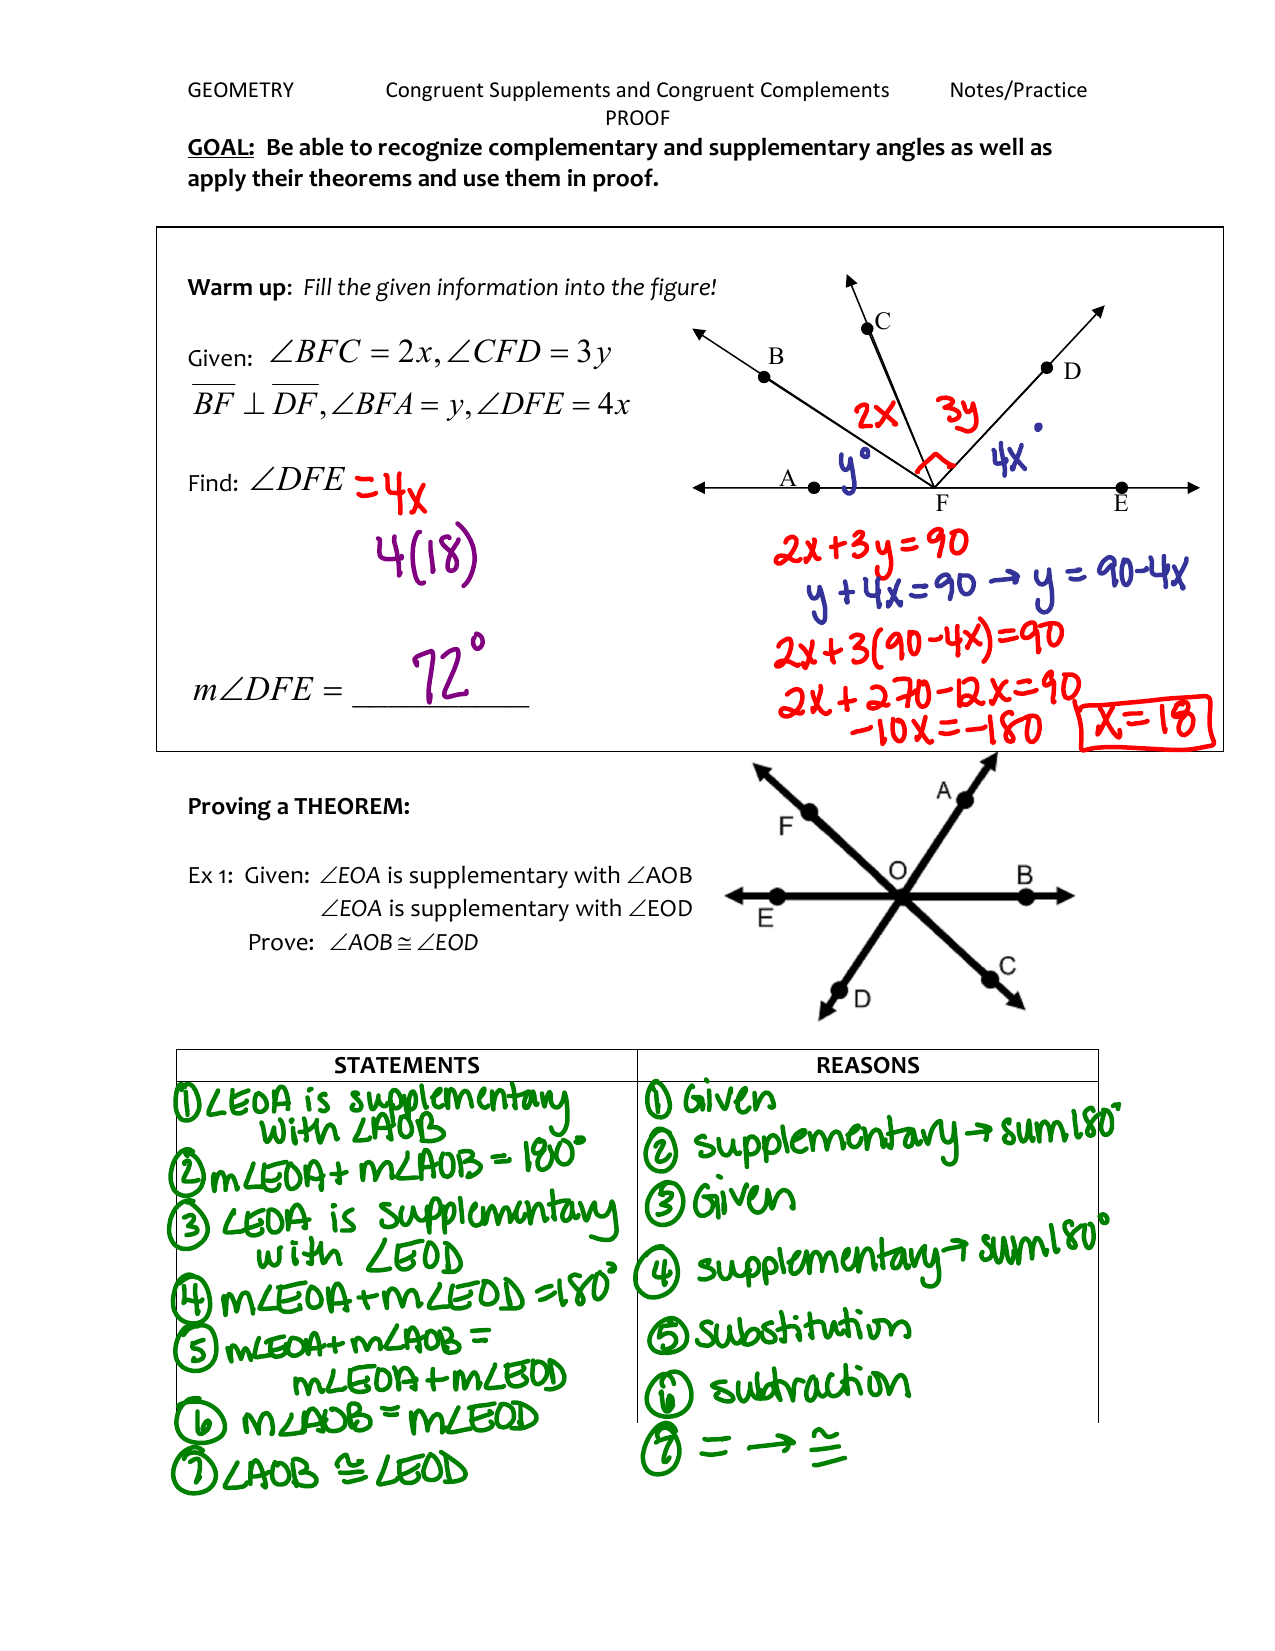 GEOMETRY Congruent Supplements and Congruent Complements Notes/Practice
PROOF
GOAL: Be able to recognize complementary and supplementary angles as well as
apply their theorems and use them in proof.
Warm up: Fill the given information into the figure!
Given: ∠BFC = 2x, ∠CFD = 3y
BF ⊥ DF, ∠BFA = y, ∠DFE = 4x
Find: ∠DFE = 4x
4(18)
m∠DFE = 72°
C
B
D
2x 3y
y° 4x°
A
F
E
2x+3y=90
y+4x=90 → y = 90-4x
2x+3(90-4x)=90
2x+270-12x=90
-10x=-180 x=18
Proving a THEOREM:
Ex 1: Given: ∠EOA is supplementary with ∠AOB
∠EOA is supplementary with ∠EOD
Prove: ∠AOB ≅ ∠EOD
A
F
O
B
E
C
D
STATEMENTS REASONS
① ∠EOA is supplementary
with ∠AOB
① Given
② m∠EOA + m∠AOB = 180°
② supplementary → sum 180°
③ ∠EOA is supplementary
with ∠EOD
③ Given
④ m∠EOA + m∠EOD = 180°
④ supplementary → sum 180°
⑤ m∠EOA + m∠AOB =
m∠EOA + m∠EOD
⑤ substitution
⑥ m∠AOB = m∠EOD
⑥ subtraction
⑦ ∠AOB ≅ ∠EOD
⑦ = → ≅